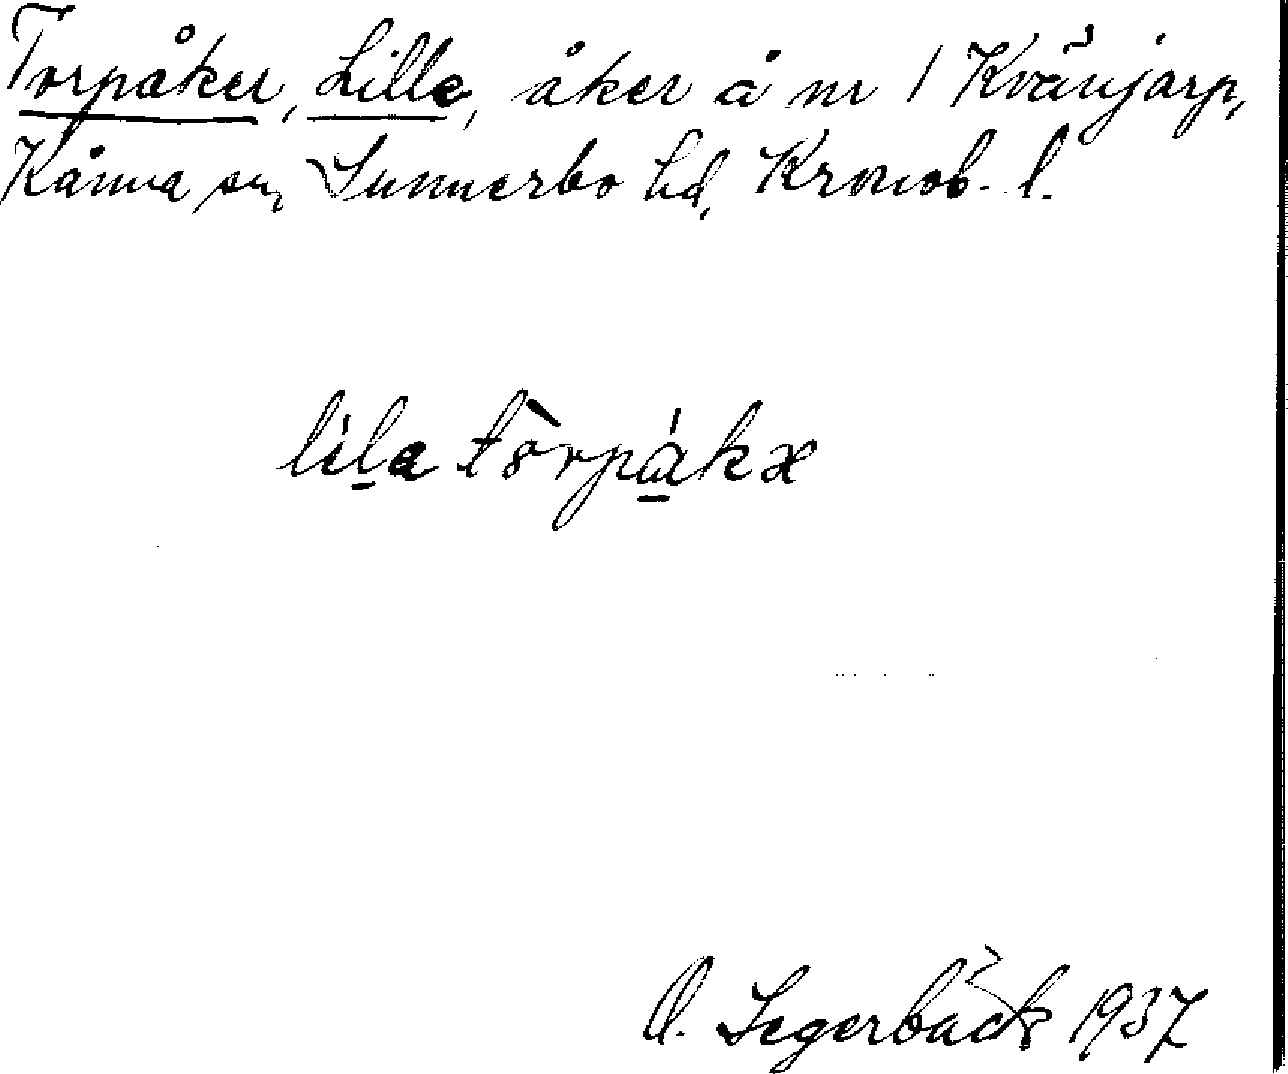 Torpåker, Lille, åker å nr 1 Kvänjarp,
Kånna sn, Sunnerbo hd, Kronob. l.
lila torpåkæ
O. Segerbäck 1937